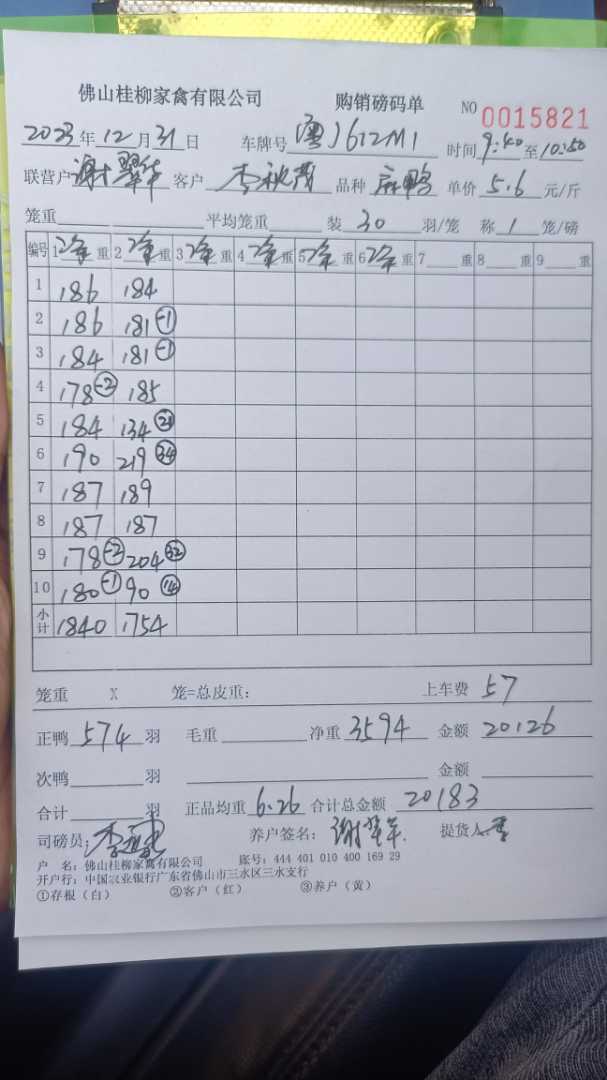 佛山桂柳家禽有限公司 购销磅码单 NO 0015821
2023年12月31日 车牌号 J612M1 时间9:40至10:50
联营户谢翠华 客户李秋茂 品种麻鸭 单价5.6元/斤
笼重 平均笼重 装30羽/笼 称1笼/磅
编号 1净重 2净重 3净重 4净重 5净重 6净重 7重 8重 9重
1 186 184
2 186 181 -1
3 184 181 -1
4 178 -2 185
5 184 134
6 190 219 34
7 187 189
8 187 187
9 178 -2 204 32
10 180 -1 90 14
小计 1840 1754
笼重 X 笼=总皮重: 上车费 57
正鸭574羽 毛重 净重3594 金额20126
次鸭 羽 金额
合计 羽 正品均重6.26 合计总金额20183
司磅员: 李 养户签名: 谢翠华 提货人
户 名: 佛山桂柳家禽有限公司 账号: 444 401 010 400 169 29
开户行: 中国农业银行广东省佛山市三水区三水支行
①存根(白) ②客户(红) ③养户(黄)